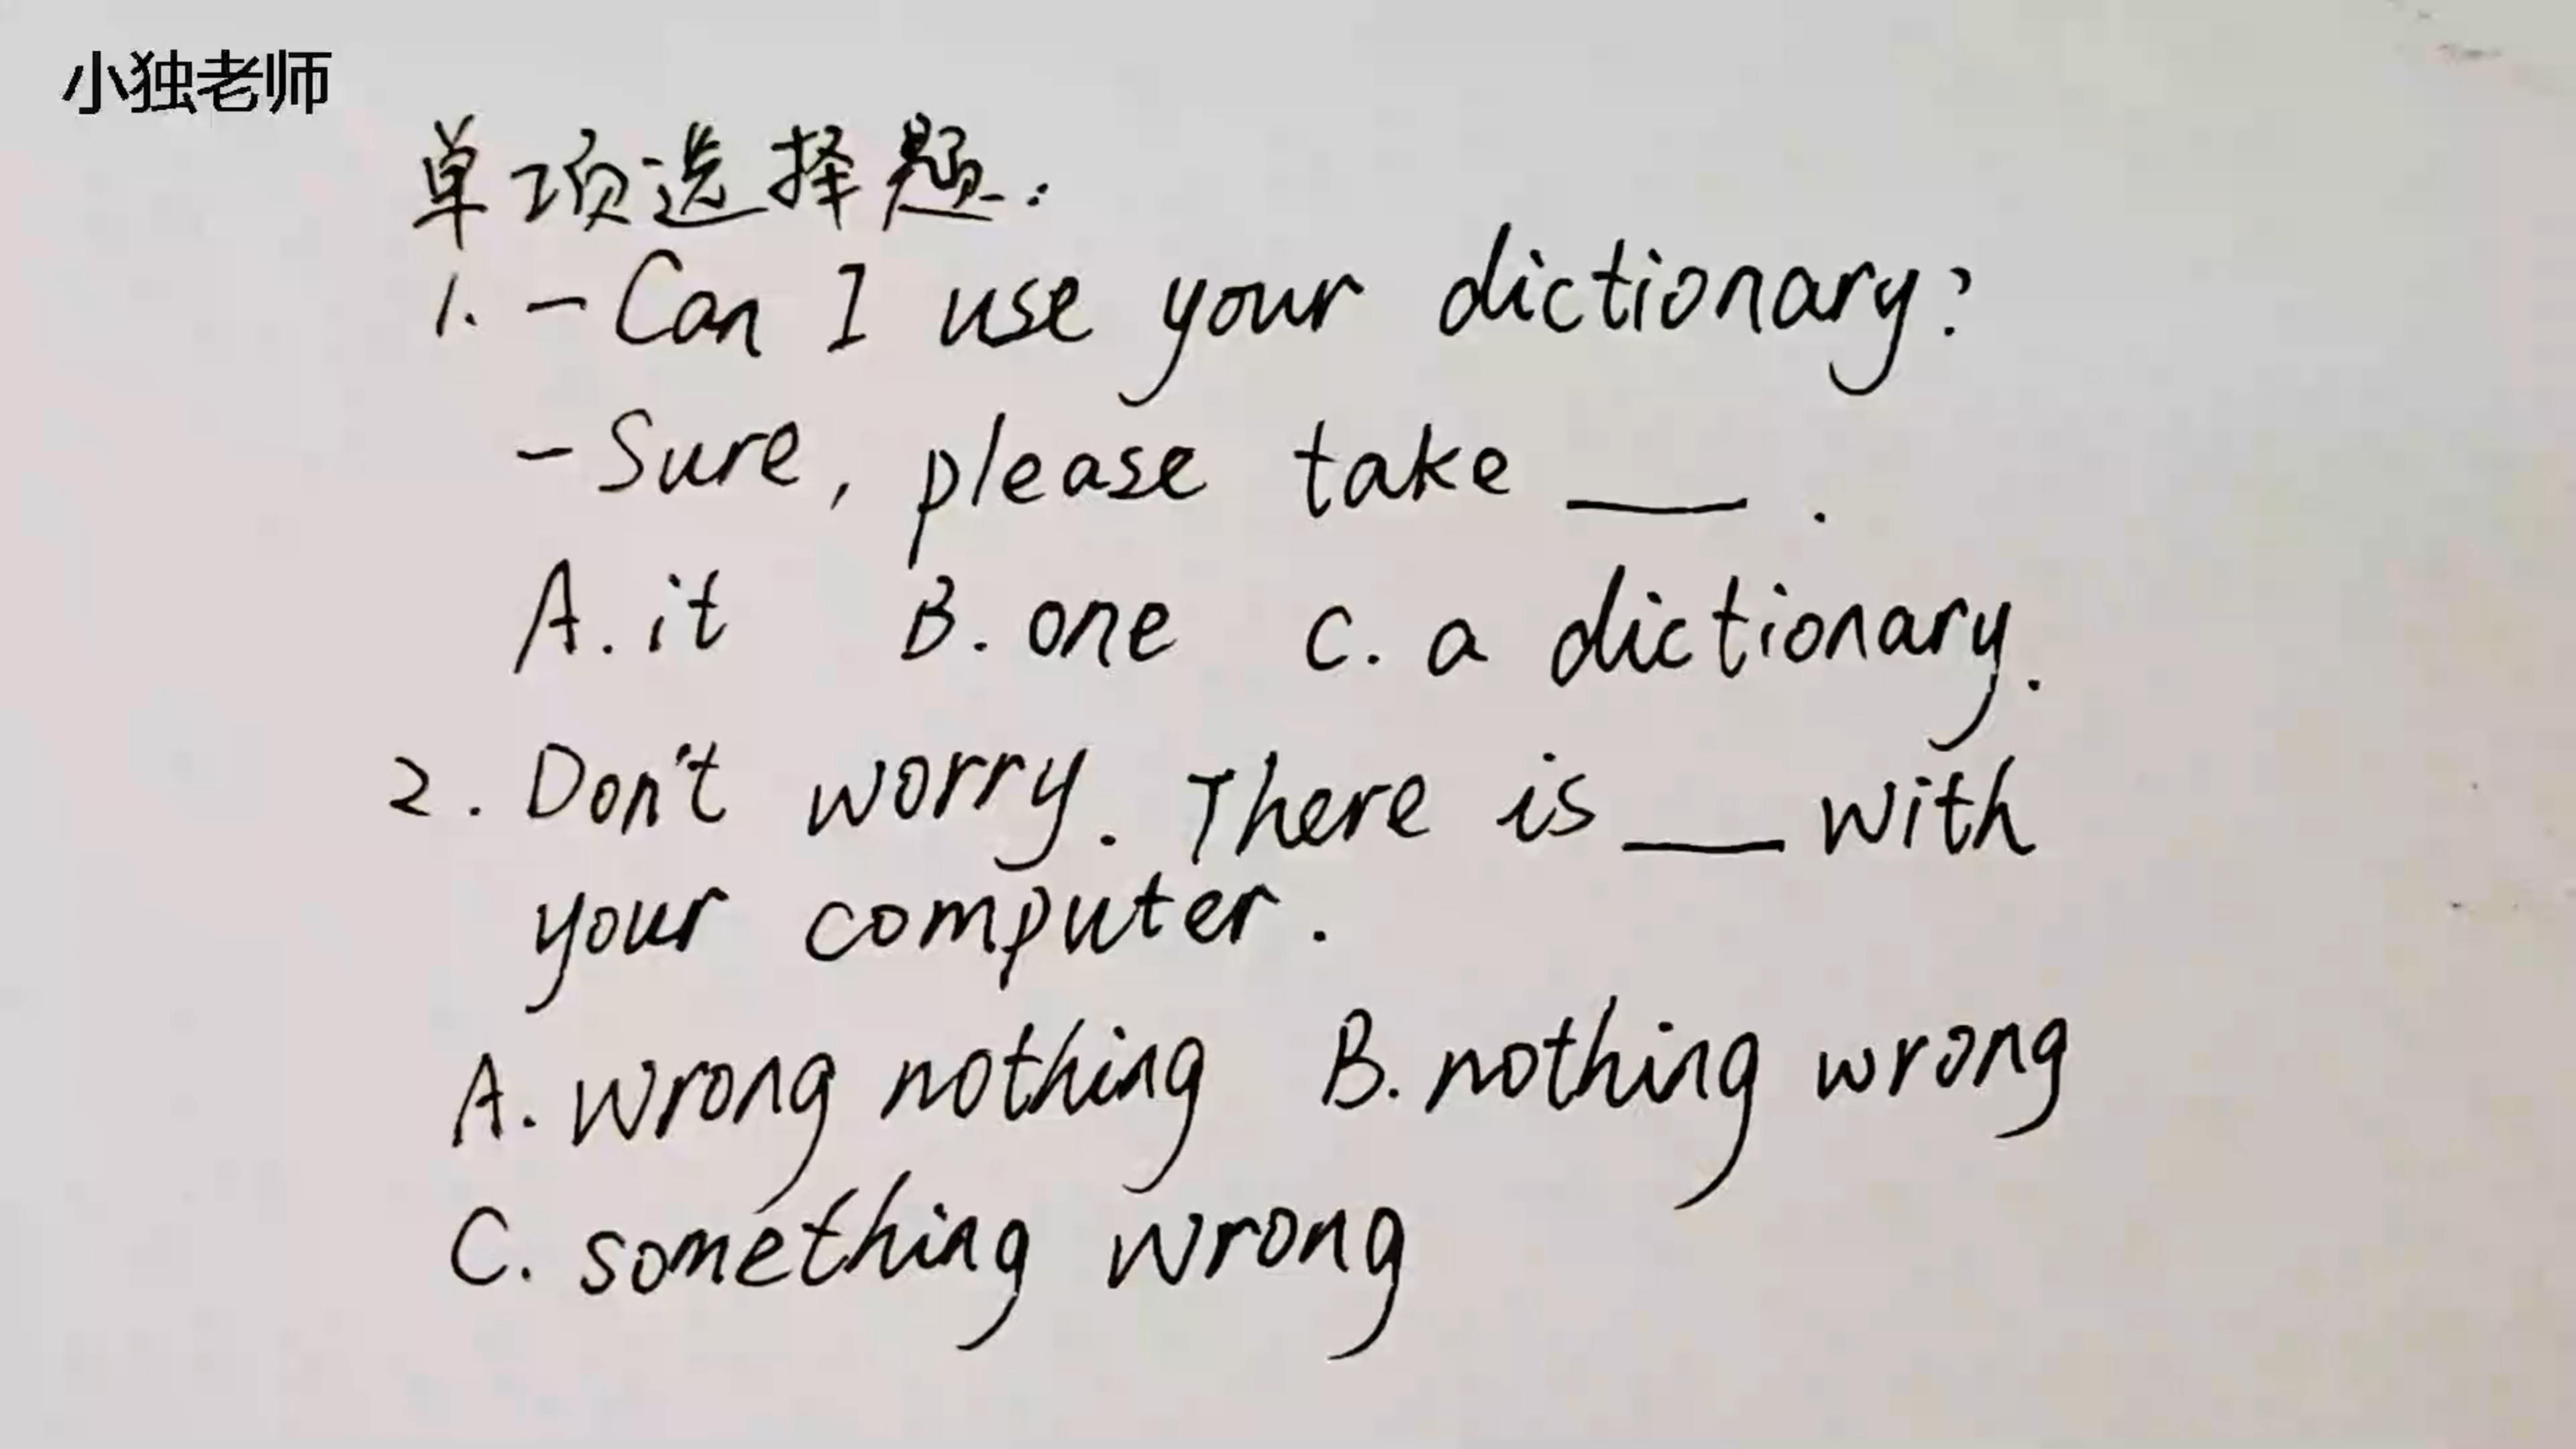 小独老师
单项选择题:
1. -Can I use your dictionary?
-Sure, please take ___ .
A. it B. one C. a dictionary.
2. Don't worry. There is ___ with
your computer.
A. wrong nothing B. nothing wrong
C. something wrong